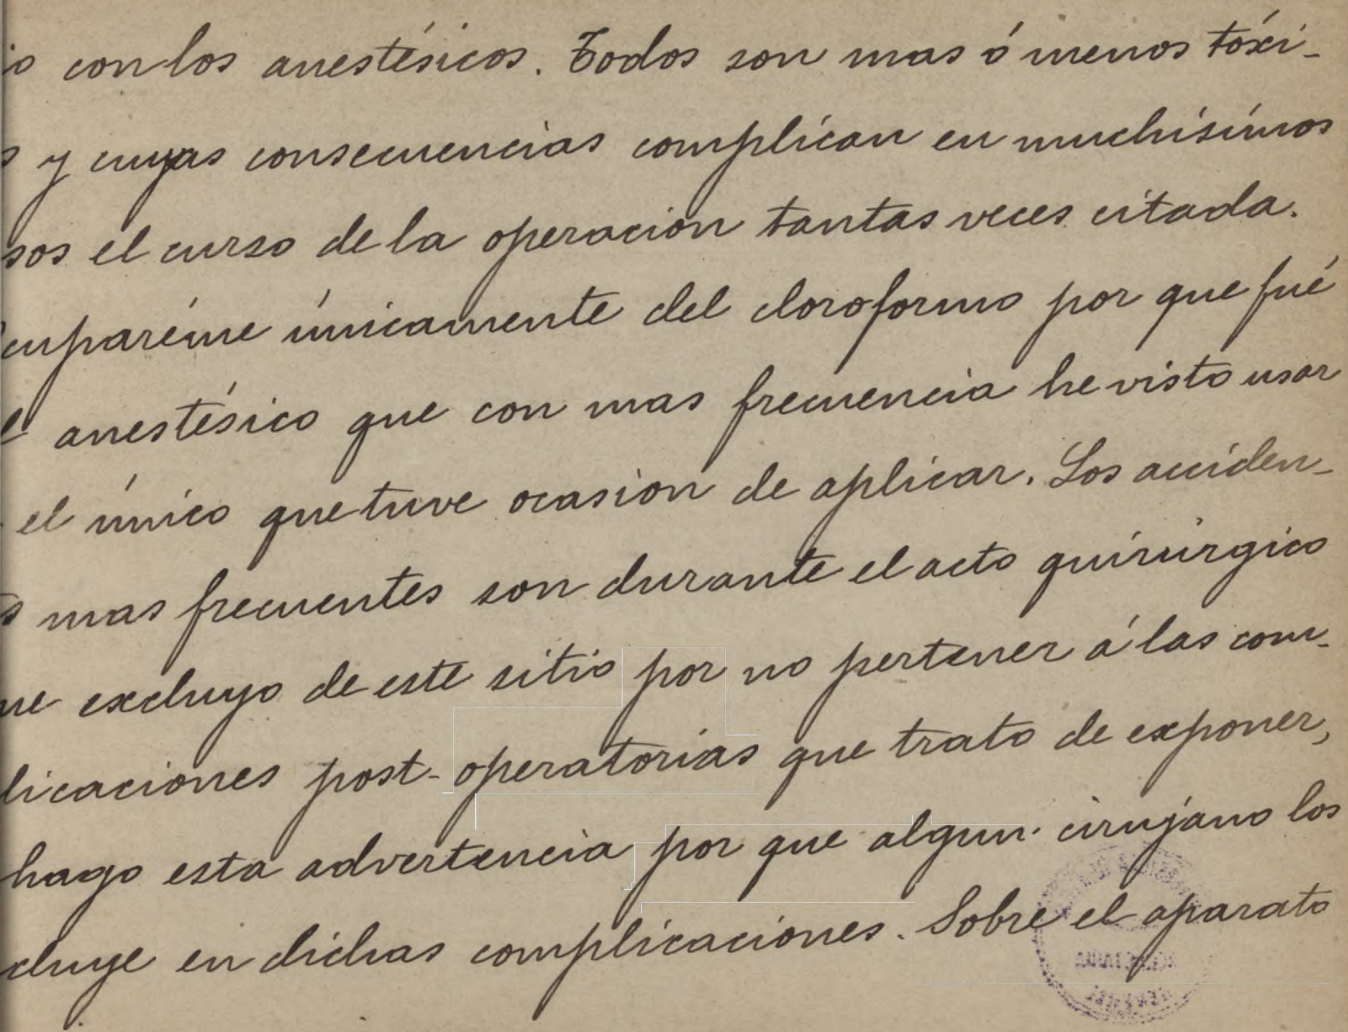 con los anestésicos. Todos son mas ó menos tóxi-
y cuyas consecuencias complican en muchísimos
sos el curso de la operacion tantas veces citada.
cuparéme únicamente del cloroformo por que fué
anestésico que con mas frecuencia he visto usar
el único que tuve ocasion de aplicar. Los acciden-
mas frecuentes son durante el acto quirúrgico
ue excluyo de este sitio por no pertenecer á las com-
licaciones post-operatorias que trato de exponer,
hago esta advertencia por que algun cirujano los
cluye en dichas complicaciones. Sobre el aparato